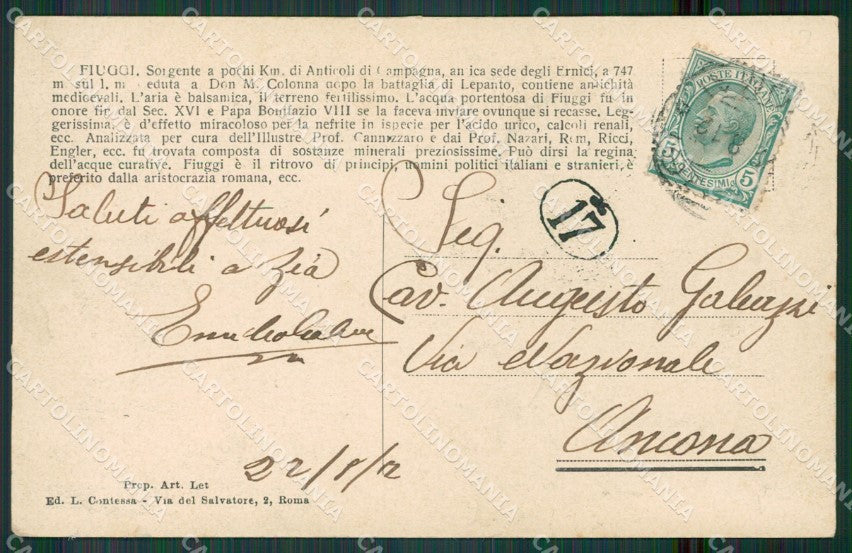 FIUGGI. Sorgente a pochi Km. di Anticoli di Campagna, an ica sede degli Ernici, a 747
m. sul l. m. eduta a Don M. Colonna dopo la battaglia di Lepanto, contiene antichità
medioevali. L'aria è balsamica, il terreno fertilissimo. L'acqua portentosa di Fiuggi fu in
onore fin dal Sec. XVI e Papa Bonifazio VIII se la faceva inviare ovunque si recasse. Leg-
gerissima, è d'effetto miracoloso per la nefrite in ispecie per l'acido urico, calcoli renali,
ecc. Analizzata per cura dell'Illustre Prof. Cannizzaro e dai Prof. Nazari, Rem, Ricci,
Engler, ecc. fu trovata composta di sostanze minerali preziosissime. Può dirsi la regina
dell'acque curative. Fiuggi è il ritrovo di principi, uomini politici italiani e stranieri, è
preferito dalla aristocrazia romana, ecc.
POSTE ITALIANE
5 CENTESIMI 5
17
Saluti affettuosi
estensibili a zia
Sig.
Cav. Augusto Galeazzi
Via Nazionale
Ancona
22/8/12
Prop. Art. Let
Ed. L. Contessa - Via del Salvatore, 2, Roma
CARTOLINOMANIA